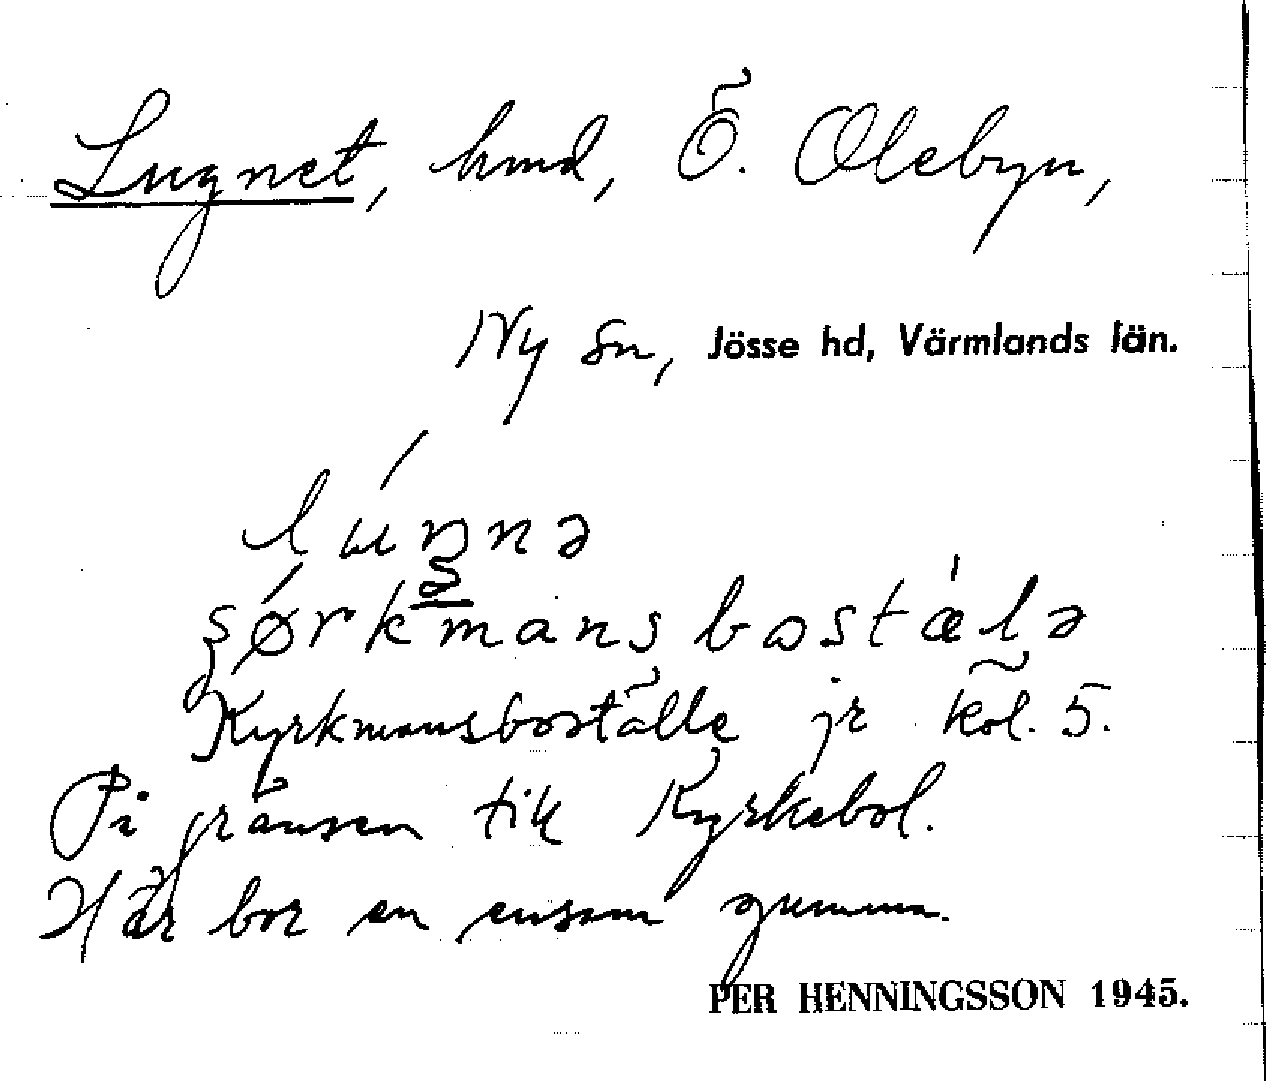 Lugnet, hmd, Ö. Olebyn,
Ny sn, Jösse hd, Värmlands län.
lúŋnə
şø̀rkmansbostǽlə
Kyrkmansboställe jr kol. 5.
På gränsen till Kyrkebol.
Här bor en ensam gumma.
PER HENNINGSSON 1945.